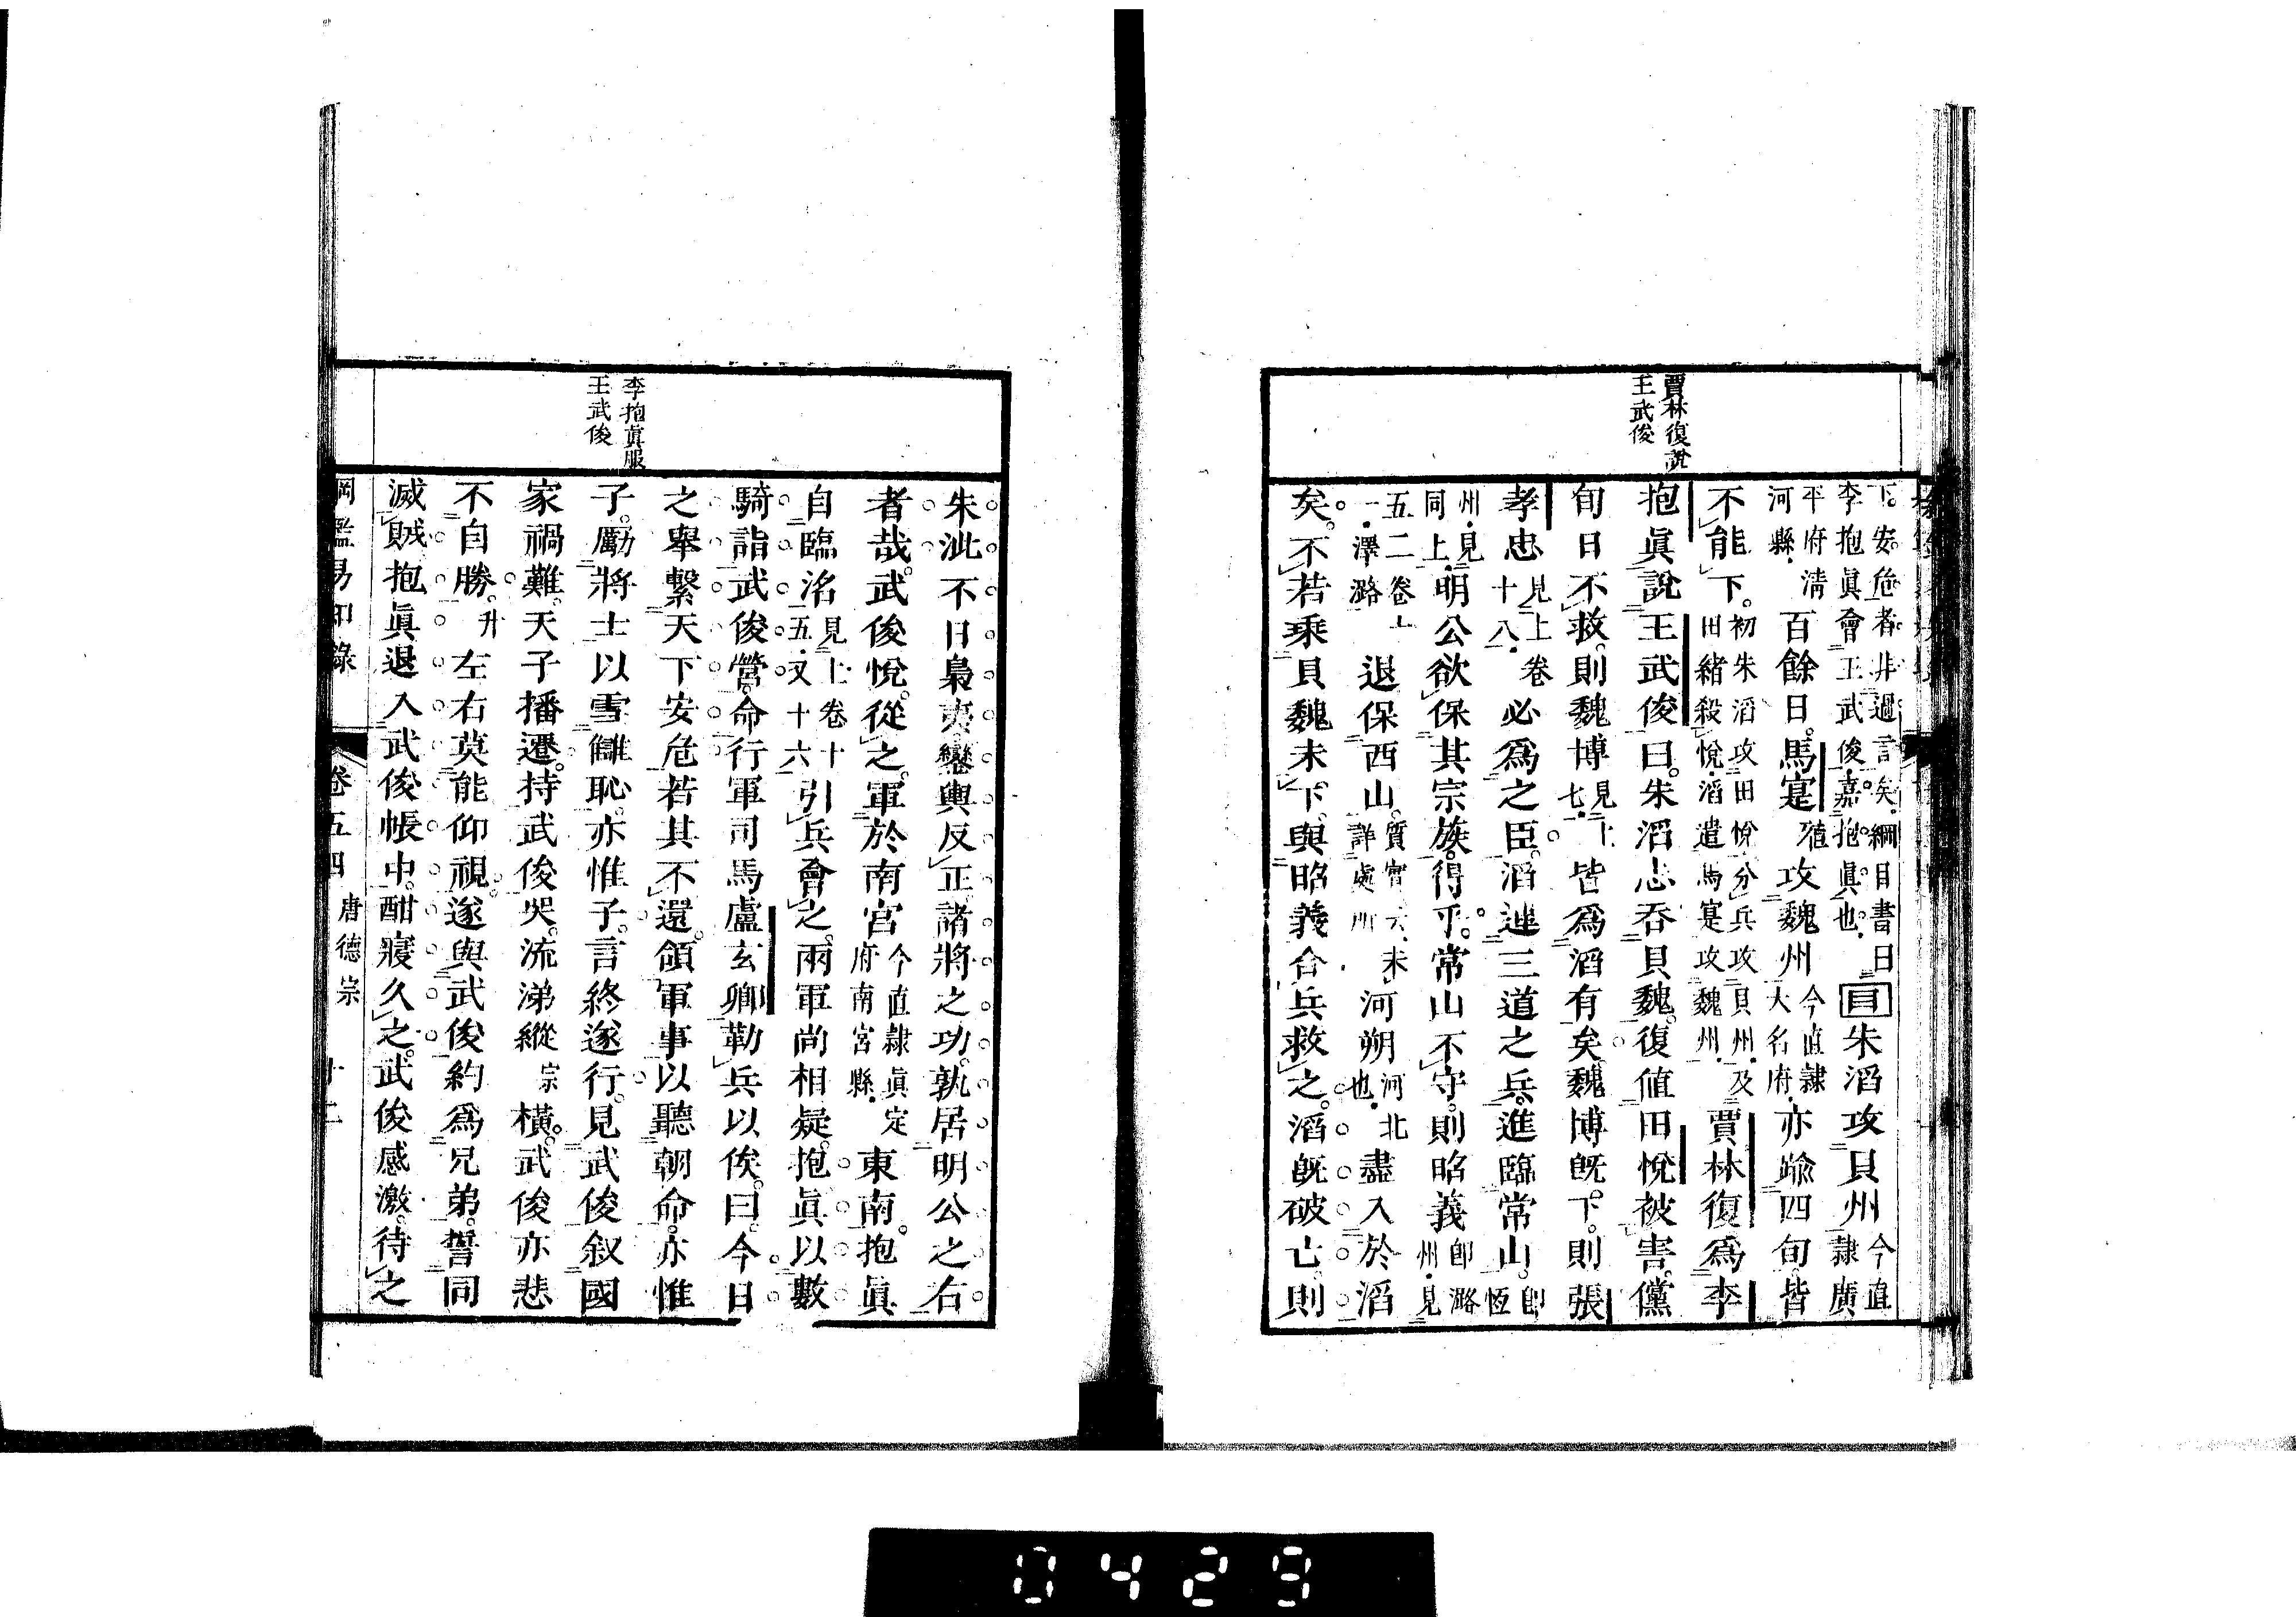 賈林復說
王武俊
下安危者非過言矣綱目書曰
李抱眞會王武俊嘉抱眞也
目朱滔攻貝州今直隸廣
平府清河縣百餘日馬寔殖攻魏州今直隸大名府亦踰四旬皆
不能下初朱滔攻田悅分兵攻貝州及田緒殺悅滔遣馬寔攻魏州賈林復爲李
抱眞說王武俊曰朱滔志吞貝魏復値田悅被害儻
旬日不救則魏博見上七皆爲滔有矣魏博旣下則張
孝忠見上卷十八必爲之臣滔連三道之兵進臨常山卽恆
州見同上明公欲保其宗族得乎常山不守則昭義卽潞州見
五二卷一澤潞退保西山河朔河北也盡入於滔
矣不若乘貝魏未下與昭義合兵救之滔旣破亡則
李抱眞服
王武俊
朱泚不日梟夷鑾輿反正諸將之功孰居明公之右
者哉武俊悅從之軍於南宮今直隸眞定府南宮縣東南抱眞
自臨洺見上卷十五又十六引兵會之兩軍尚相疑抱眞以數
騎詣武俊營命行軍司馬盧玄卿勒兵以俟曰今日
之舉繫天下安危若其不還領軍事以聽朝命亦惟
子勵將士以雪讎恥亦惟子言終遂行見武俊叙國
家禍難天子播遷持武俊哭流涕縱宗橫武俊亦悲
不自勝升左右莫能仰視遂與武俊約爲兄弟誓同
滅賊抱眞退入武俊帳中酣寢久之武俊感激待之
綱鑑易知錄 卷五四 唐德宗 十二
0429